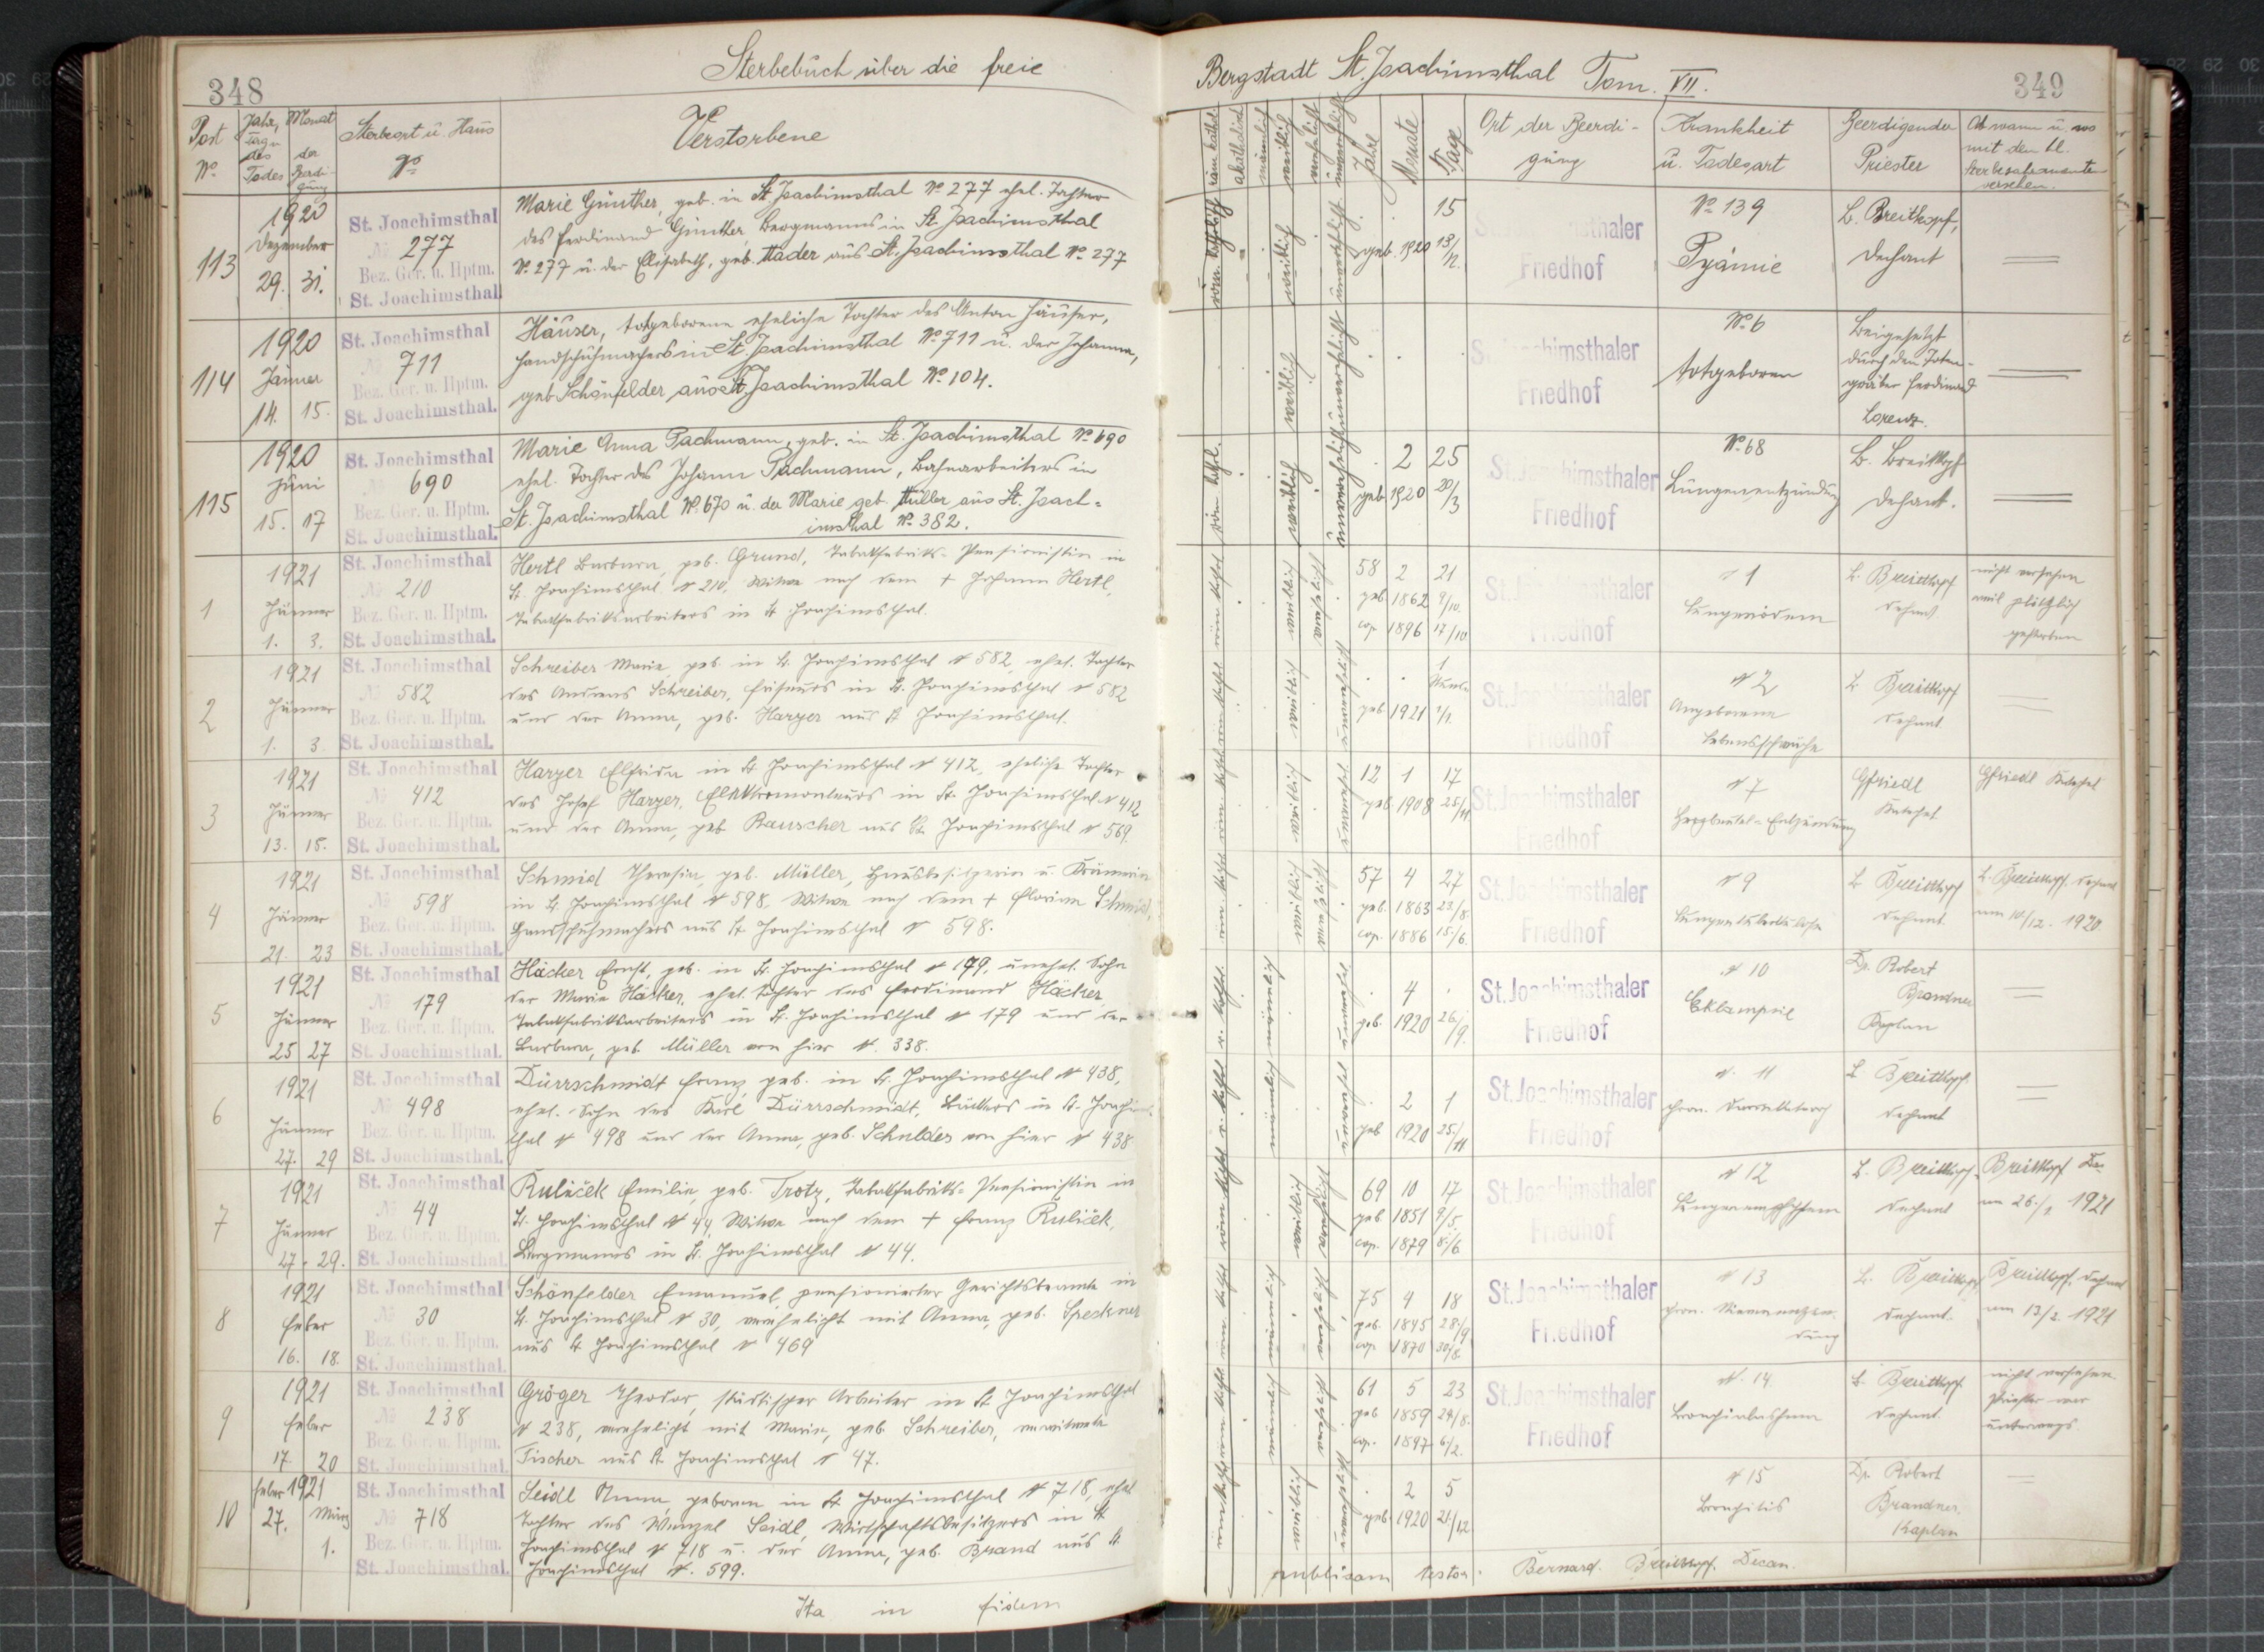 348
Sterbebuch über die freie
Post No.
Jahr, Tag u. des Todes
Monat der Beerdigung
Sterbeort u. Haus No
Verstorbene
113
1920
Dezember
29. 31.
St. Joachimsthal
No 277
Bez. Ger. u. Hptm.
St. Joachimsthal
Marie Günther, geb. in St. Joachimsthal No 277 ehel. Tochter
des Ferdinand Günther, Bergmanns in St. Joachimsthal
No 277 u. der Elisabeth, geb. Mader aus St. Joachimsthal No 277
114
1920
Jänner
14. 15.
St. Joachimsthal
No 711
Bez. Ger. u. Hptm.
St. Joachimsthal.
Häuser, totgeborene eheliche Tochter des Anton Häuser,
Handschuhmachers in St. Joachimsthal No 711 u. der Johanna,
geb Schönfelder aus St. Joachimsthal No 104.
115
1920
Juni
15. 17
St. Joachimsthal
No 690
Bez. Ger. u. Hptm.
St. Joachimsthal.
Marie Anna Pachmann, geb. in St. Joachimsthal No 690
ehel. Tochter des Johann Pachmann, Bahnarbeiters in
St. Joachimsthal No. 670 u. der Marie geb. Müller aus St. Joach-
imsthal No 382.
1
1921
Jänner
1. 3.
St. Joachimsthal
No 210
Bez. Ger. u. Hptm.
St. Joachimsthal.
Hertl Barbara, geb. Grund, Tabakfabriks-Pensionistin in
St. Joachimsthal No 210, Witwe nach dem + Johann Hertl,
Tabakfabriksarbeiters in St. Joachimsthal.
2
1921
Jänner
1. 3.
St. Joachimsthal
No 582
Bez. Ger. u. Hptm.
St. Joachimsthal.
Schreiber Marie geb. in St. Joachimsthal No 582, ehel. Tochter
des Andreas Schreiber, Friseurs in St. Joachimsthal No 582
und der Anna, geb. Harzer aus St Joachimsthal.
3
1921
Jänner
13. 15.
St. Joachimsthal
No 412
Bez. Ger. u. Hptm.
St. Joachimsthal.
Harzer Elfrida in St. Joachimsthal No 412, eheliche Tochter
des Josef Harzer, Elektromonteurs in St. Joachimsthal No 412
und der Anna, geb Rauscher aus St. Joachimsthal No 569.
4
1921
Jänner
21. 23
St. Joachimsthal
No 598
Bez. Ger. u. Hptm.
St. Joachimsthal.
Schmid Theresia, geb. Müller, Hausbesitzerin u. Krämerin
in St. Joachimsthal No 598. Witwe nach dem + Florian Schmid,
Handschuhmachers aus St Joachimsthal No 598.
5
1921
Jänner
25 27
St. Joachimsthal
No 179
Bez. Ger. u. Hptm.
St. Joachimsthal.
Häcker Ernst, geb. in St. Joachimsthal No 179, unehel. Sohn
der Marie Häcker, ehel. Tochter des Ferdinand Häcker
Tabakfabriksarbeiters in St. Joachimsthal No 179 und der
Barbara, geb. Müller von hier No. 338.
6
1921
Jänner
27. 29
St. Joachimsthal
No 498
Bez. Ger. u. Hptm.
St. Joachimsthal.
Dürrschmidt Franz, geb. in St. Joachimsthal No 438,
ehel. Sohn des Karl Dürrschmidt, Bäckers in St. Joachims-
thal No 498 und der Anna, geb. Schuldes von hier No 438
7
1921
Jänner
27. 29.
St. Joachimsthal
No 44
Bez. Ger. u. Hptm.
St. Joachimsthal
Ruliček Emilie, geb. Trotz, Tabakfabriks-Pensionistin in
St. Joachimsthal No 44, Witwe nach dem + Franz Ruliček,
Bergmanns in St. Joachimsthal No 44.
8
1921
Feber
16. 18.
St. Joachimsthal
No 30
Bez. Ger. u. Hptm.
St. Joachimsthal.
Schönfelder Emanuel, pensionierter Gerichtsbeamte in
St. Joachimsthal No 30, verehelicht mit Anna, geb. Speckner
aus St Joachimsthal No 469
9
1921
Feber
17. 20
St. Joachimsthal
No 238
Bez. Ger. u. Hptm.
St. Joachimsthal.
Gröger Theodor, städtischer Arbeiter in St Joachimsthal
No 238, verehelicht mit Maria, geb Schreiber, verwitwete
Fischer aus St. Joachimsthal No 47.
10
Feber 1921
27. März
1.
St. Joachimsthal
No 718
Bez. Ger. u. Hptm.
St. Joachimsthal.
Seidl Anna, geboren in St. Joachimsthal No 718, ehel
Tochter des Wenzel Seidl, Wirtschaftsbesitzers in St
Joachimsthal No 718 u. der Anna, geb. Brand aus St.
Joachimsthal No. 599.
Ita in fidem
Bergstadt St. Joachimsthal Tom. VII.
349
röm. kathol.
akatholisch
männlich
weiblich
verehelicht
unverehelicht
Jahre
Monate
Tage
Ort der Beerdi-
gung
Krankheit
u. Todesart
Beerdigender
Priester
Ob wann u. wo
mit den hl.
Sterbesakramenten
versehen.
weiblich unverehelicht
15
geb. 1920 13/12.
St. Joachimsthaler
Friedhof
No 139
Pyämie
B. Breitkopf,
Dechant
weiblich unverehelicht
St. Joachimsthaler
Friedhof
No 6
totgeboren
Beigesetzt
durch den Toten-
gräber Ferdinand
Lorenz.
weiblich unverehelicht
2 25
geb 1920 20/3
St. Joachimsthaler
Friedhof
No. 68
Lungenentzündung
B. Breitkopf
Dechant.
weiblich
58 2 21
geb 1862 9/10.
cop. 1896 17/10
St. Joachimsthaler
Friedhof
No 1
Lungenödem
B. Breitkopf
Dechant
nicht versehen
weil plötzlich
gestorben
weiblich unverehelicht
1 Stunde
geb 1921 1/1.
St. Joachimsthaler
Friedhof
No 2
Angeborene
Lebensschwäche
B Breitkopf
Dechant
weiblich
12 1 17
geb. 1908 25/11
St. Joachimsthaler
Friedhof
No 7
Herzbeutel-Entzündung
Gfriedl
Katechet
Gfriedl Katechet
weiblich
57 4 27
geb. 1863 23/8.
cop. 1886 15/6.
St. Joachimsthaler
Friedhof
No 9
Lungentuberkulose
B Breitkopf
Dechant
B. Breitkopf. Dechant
am 10/12. 1920
männlich
4
geb. 1920 26/9.
St. Joachimsthaler
Friedhof
No 10
Eklampsie
Dr. Robert
Brandner
Kaplan
männlich
2 1
geb 1920 25/11
St. Joachimsthaler
Friedhof
No. 11
chron. Darmkatarrh
B Breitkopf.
Dechant
weiblich
69 10 17
geb 1851 9/5.
cop. 1879 8/6
St. Joachimsthaler
Friedhof
No 12
Lungenemphysem
B. Breitkopf
Dechant
Breitkopf Dec.
am 26./1 1921
männlich verehelicht
75 4 18
geb. 1845 28/9
cop 1870 30/8.
St. Joachimsthaler
Friedhof
No 13
chron. Nierenentzün-
dung
B. Breitkopf
Dechant.
Breitkopf, Dechant
am 13/2. 1921
männlich verehelicht
61 5 23
geb 1859 24/8.
cop. 1897 6/2.
St. Joachimsthaler
Friedhof
No. 14
Bronchialasthma
B. Breitkopf
Dechant.
nicht versehen
Priester war
unterwegs.
weiblich unverehelicht
2 5
geb. 1920 21/12
No 15
Bronchitis
Dr. Robert
Brandner
Kaplan
publicam testor. Bernard. Breitkopf. Decan.